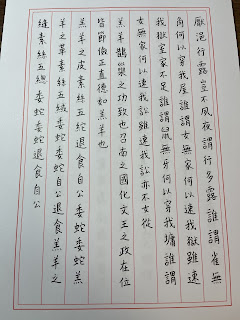 厭浥行露豈不夙夜謂行多露誰謂雀無
角何以穿我屋誰謂女無家何以速我獄雖速
我獄室家不足誰謂鼠無牙何以穿我墉誰謂
女無家何以速我訟雖速我訟亦不女從
羔羊鵲巢之功致也召南之國化文王之政在位
皆節儉正直德如羔羊也
羔羊之皮素絲五紽退食自公委蛇委蛇羔
羊之革素絲五緎委蛇委蛇自公退食羔羊之
縫素絲五總委蛇委蛇退食自公